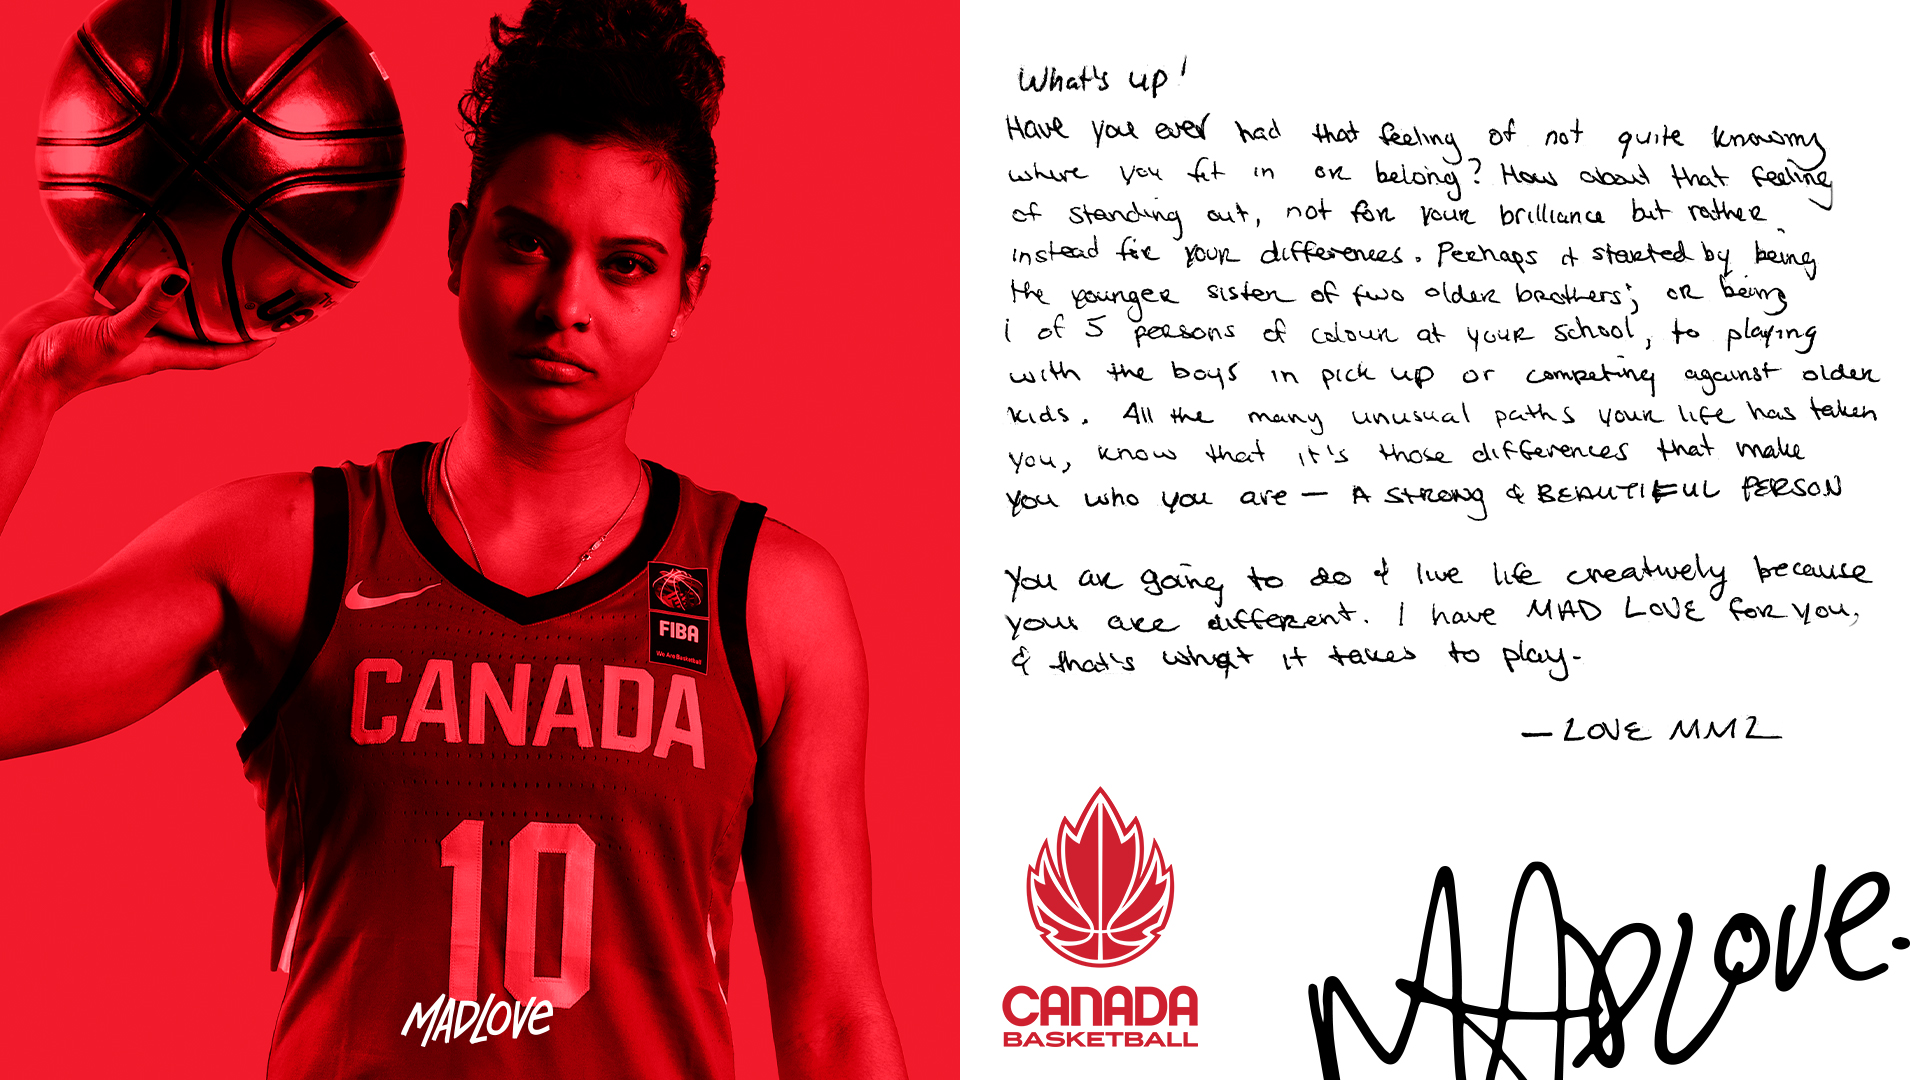 FIBA
We Are Basketball
CANADA
10
MADLOVE
What's up!
Have you ever had that feeling of not quite knowing
where you fit in or belong? How about that feeling
of standing out, not for your brilliance but rather
instead for your differences. Perhaps it started by being
the younger sister of two older brothers; or being
1 of 5 persons of colour at your school, to playing
with the boys in pick up or competing against older
kids. All the many unusual paths your life has taken
you, know that it's those differences that make
you who you are — A STRONG & BEAUTIFUL PERSON
You are going to do & live life creatively because
your are different. I have MAD LOVE for you,
& that's what it takes to play.
— LOVE MML
CANADA
BASKETBALL
MADLOVE.